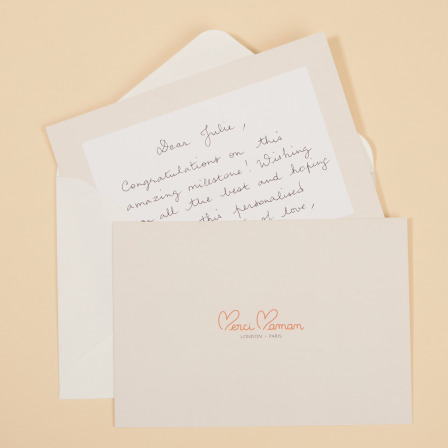 Dear Julie,
Congratulations on this
amazing milestone! Wishing
all the best and hoping
this personalised
of love,
Merci Maman
LONDON - PARIS